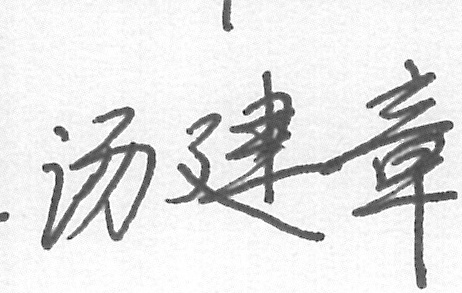 汤建章